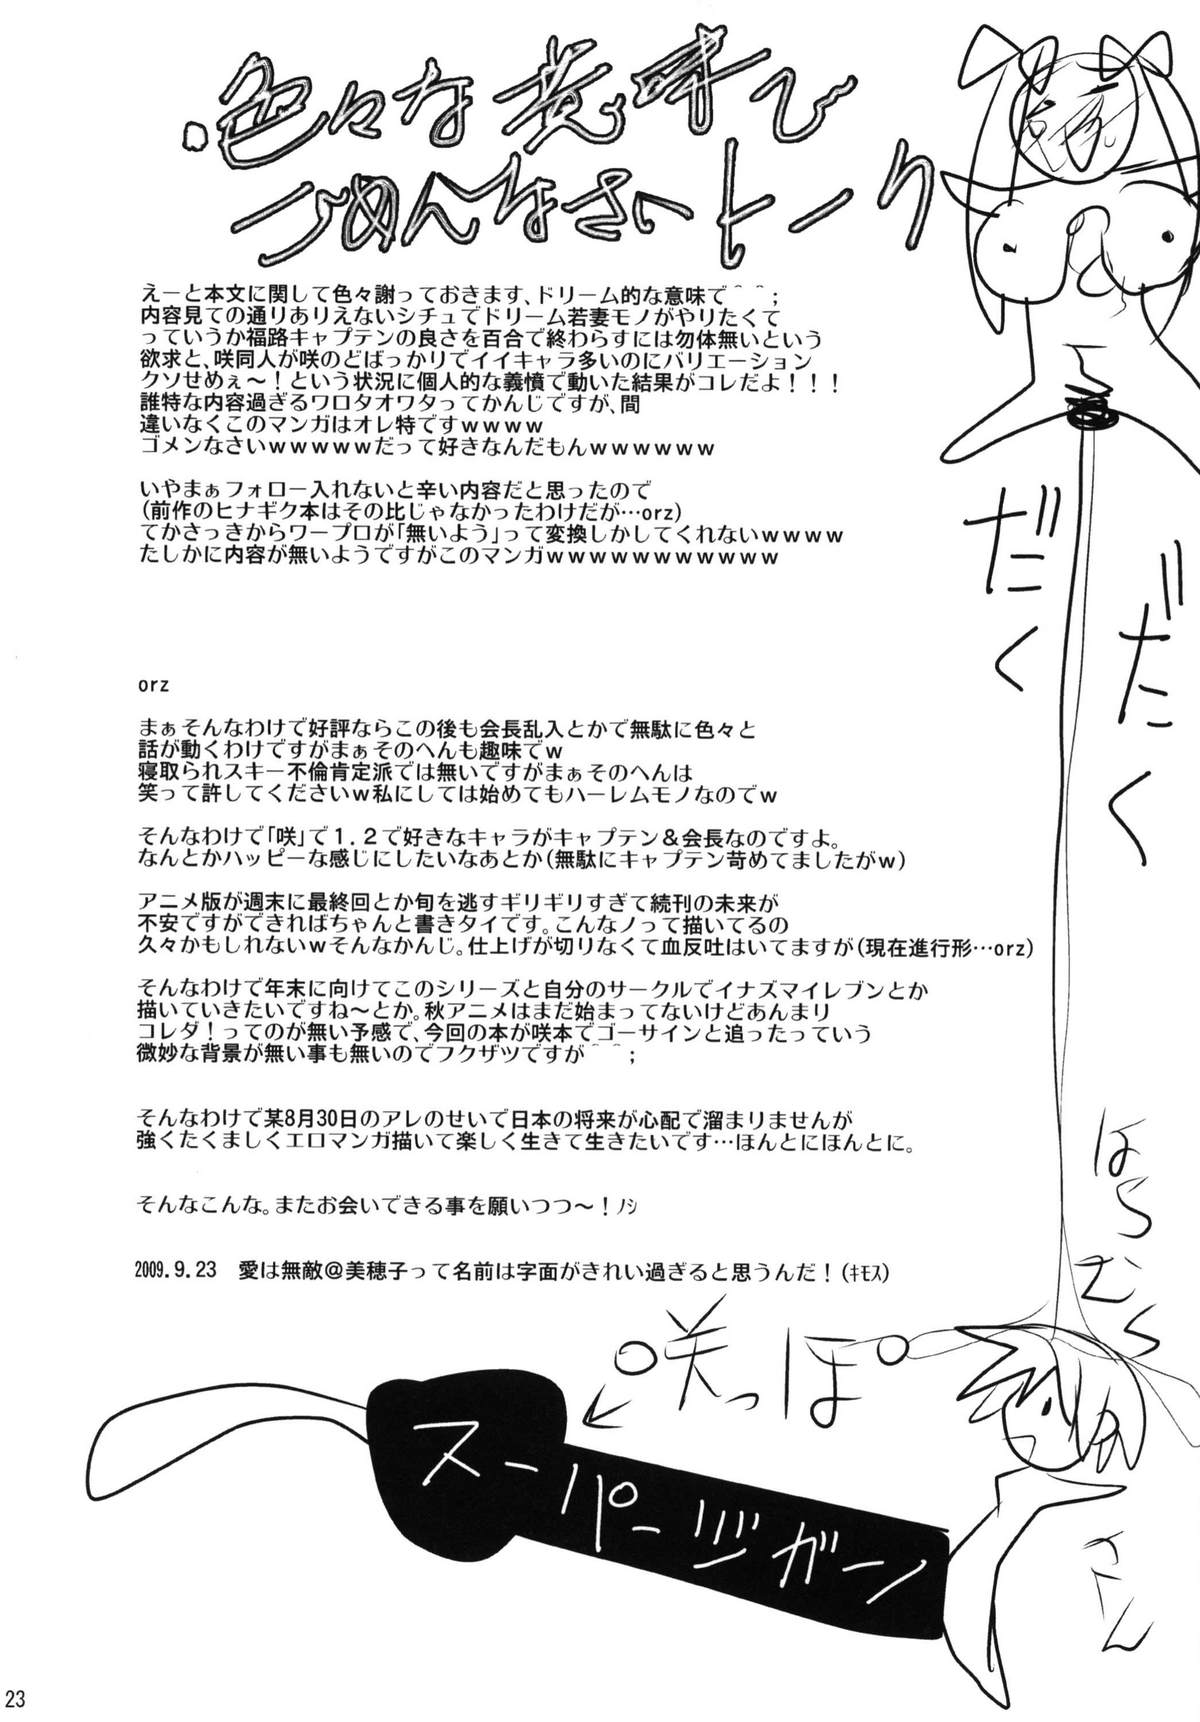 ・色々な意味で
ごめんなさいトーク
えーと本文に関して色々謝っておきます、ドリーム的な意味で＾＾；
内容見ての通りありえないシチュでドリーム若妻モノがやりたくて
っていうか福路キャプテンの良さを百合で終わらすには勿体無いという
欲求と、咲同人が咲のどばっかりでイイキャラ多いのにバリエーション
クソせめぇ～！という状況に個人的な義憤で動いた結果がコレだよ！！！
誰特な内容過ぎるワロタオワタってかんじですが、間
違いなくこのマンガはオレ特ですｗｗｗｗ
ゴメンなさいｗｗｗｗｗだって好きなんだもんｗｗｗｗｗｗ
いやまぁフォロー入れないと辛い内容だと思ったので
(前作のヒナギク本はその比じゃなかったわけだが…orz)
てかさっきからワープロが「無いよう」って変換しかしてくれないｗｗｗｗ
たしかに内容が無いようですがこのマンガｗｗｗｗｗｗｗｗｗｗｗ
orz
まぁそんなわけで好評ならこの後も会長乱入とかで無駄に色々と
話が動くわけですがまぁそのへんも趣味でｗ
寝取られスキー不倫肯定派では無いですがまぁそのへんは
笑って許してくださいｗ私にしては始めてもハーレムモノなのでｗ
そんなわけで「咲」で１．２で好きなキャラがキャプテン＆会長なのですよ。
なんとかハッピーな感じにしたいなあとか(無駄にキャプテン苛めてましたがｗ)
アニメ版が週末に最終回とか旬を逃すギリギリすぎて続刊の未来が
不安ですができればちゃんと書きタイです。こんなノって描いてるの
久々かもしれないｗそんなかんじ。仕上げが切りなくて血反吐はいてますが(現在進行形…orz)
そんなわけで年末に向けてこのシリーズと自分のサークルでイナズマイレブンとか
描いていきたいですね～とか。秋アニメはまだ始まってないけどあんまり
コレダ！ってのが無い予感で、今回の本が咲本でゴーサインと追ったっていう
微妙な背景が無い事も無いのでフクザツですが＾＾；
そんなわけで某8月30日のアレのせいで日本の将来が心配で溜まりませんが
強くたくましくエロマンガ描いて楽しく生きて生きたいです…ほんとにほんとに。
そんなこんな。またお会いできる事を願いつつ～！ﾉｼ
2009.9.23　愛は無敵＠美穂子って名前は字面がきれい過ぎると思うんだ！(ｷﾓｽ)
だく
だく
はらむら
さん
咲っぽ
スーパージガーン
23